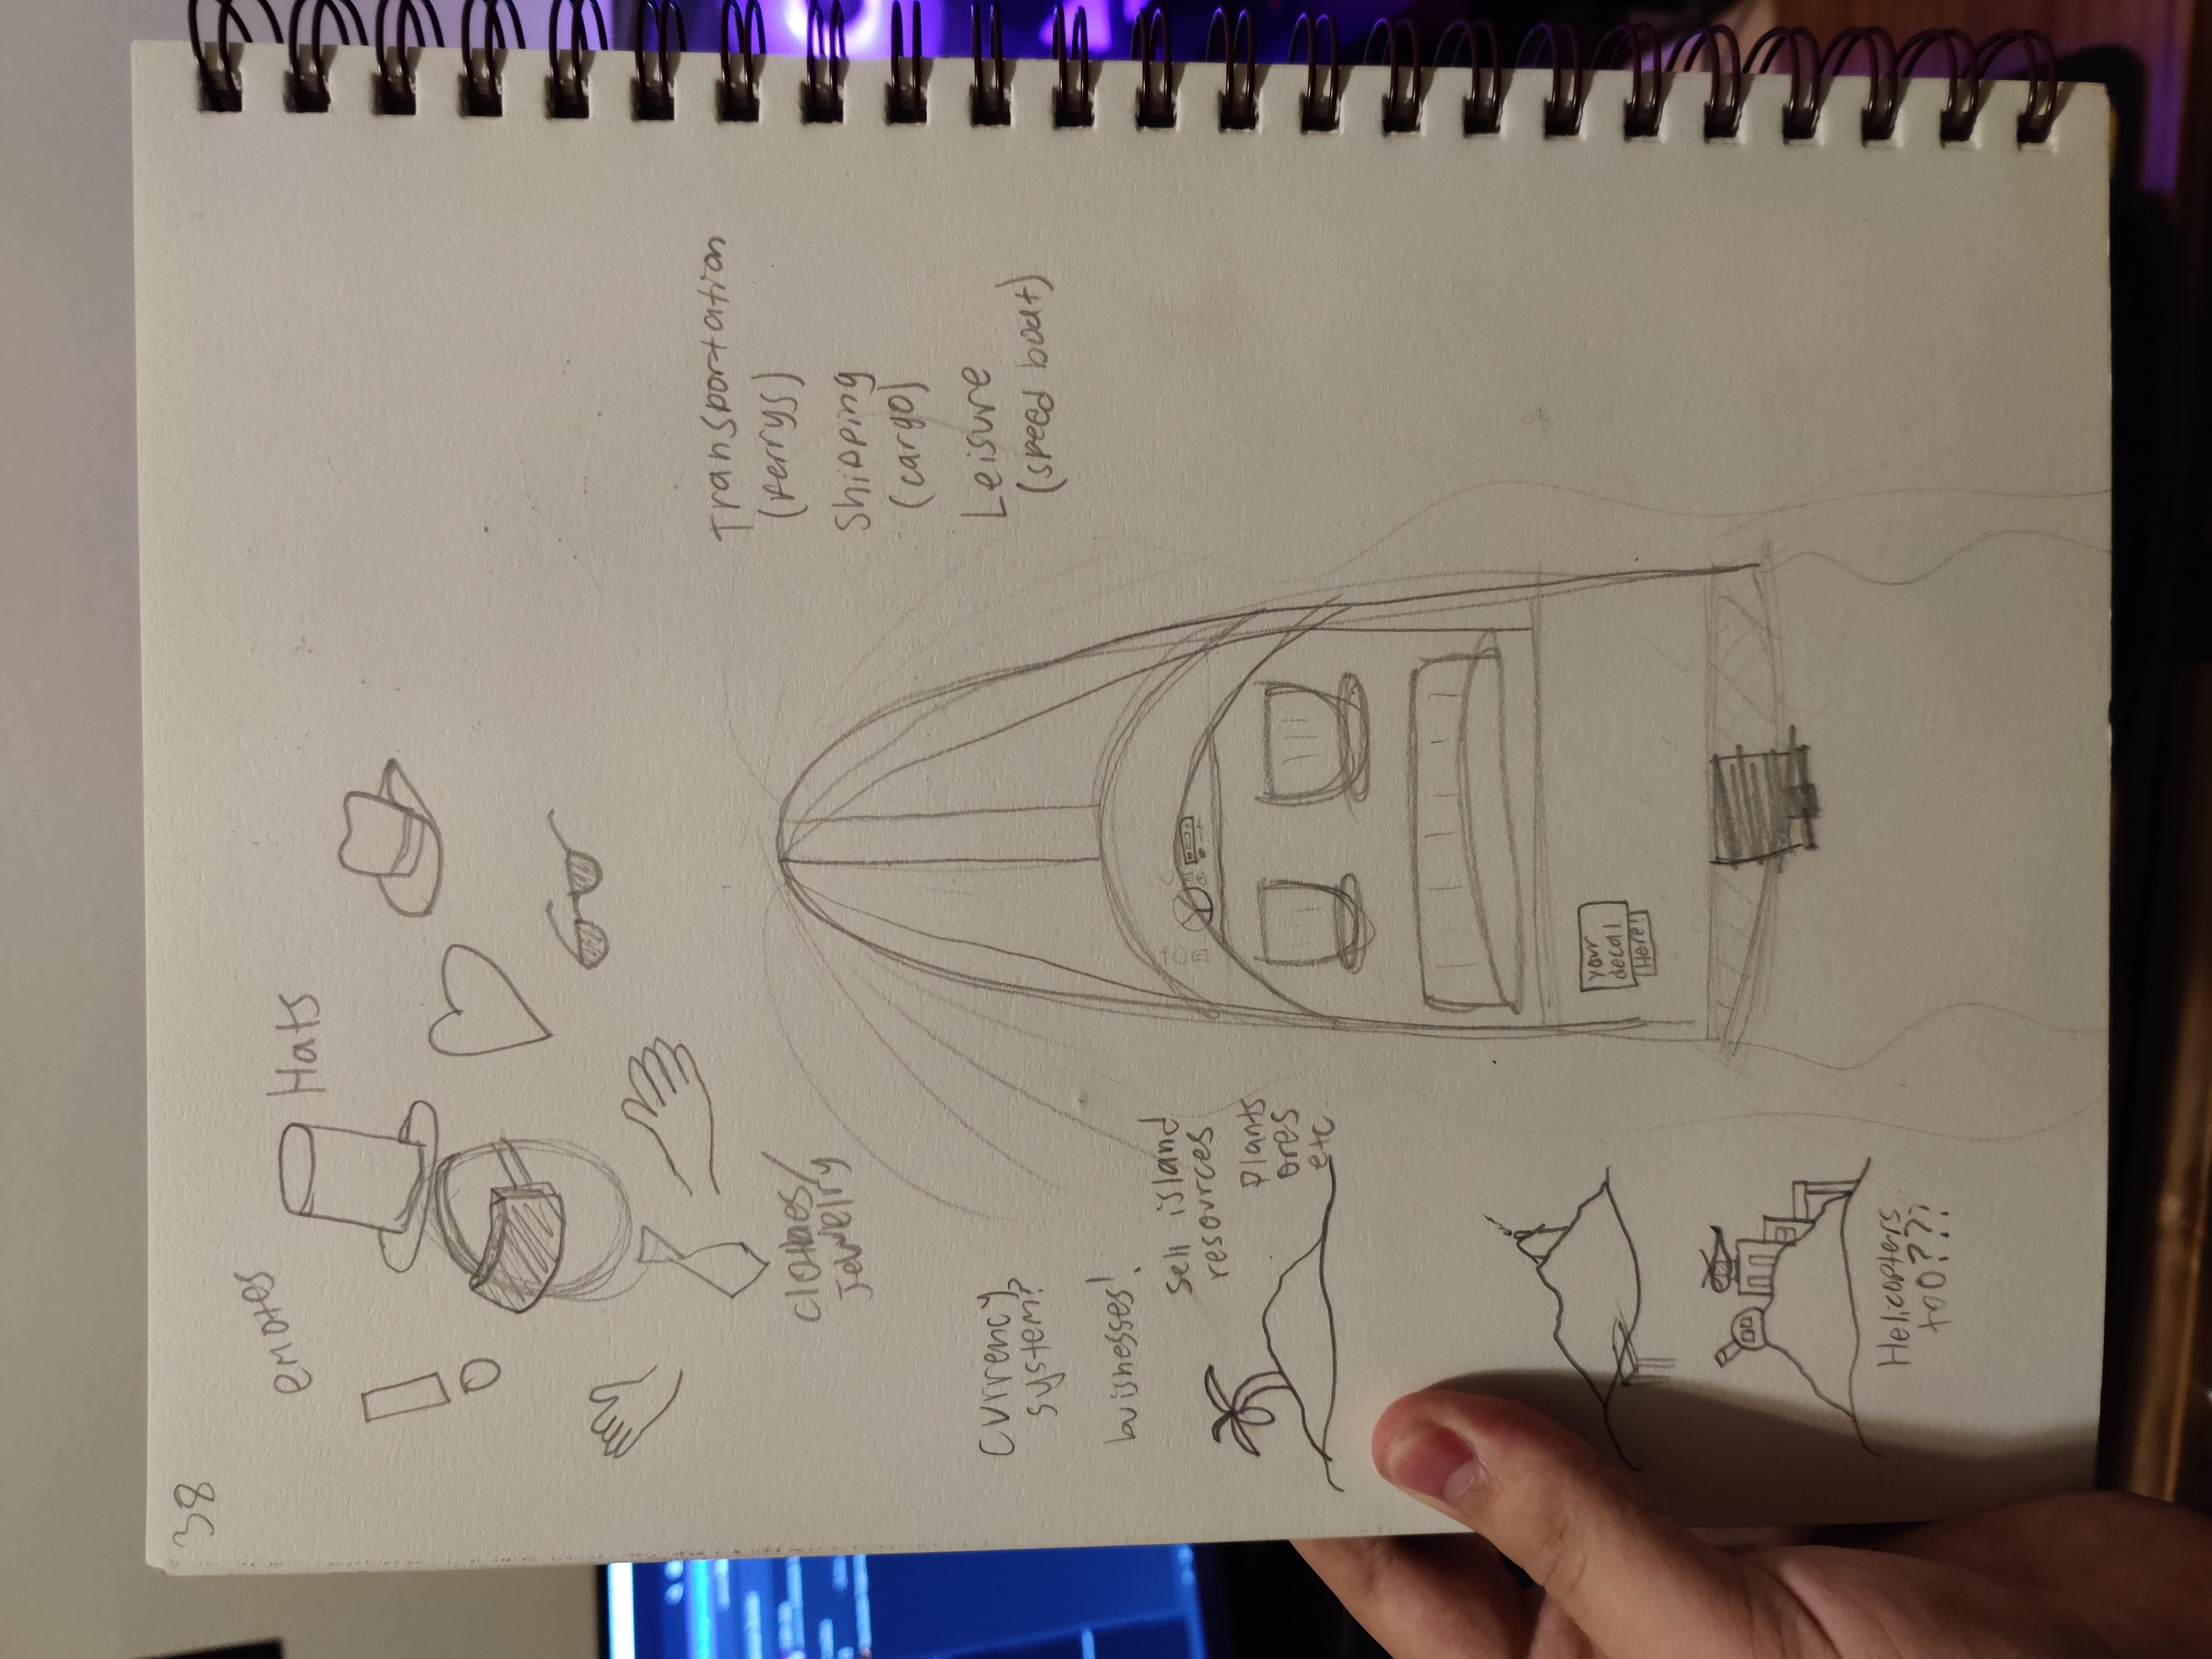 38
emotes
Hats
clothes/
Jewelry
Transportation
(ferrys)
Shipping
(cargo)
Leisure
(speed boat)
Currency
system?
buisnesses!
Sell island
resources
Plants
ores
etc.
your
decal
Here!
Helicopters
too???